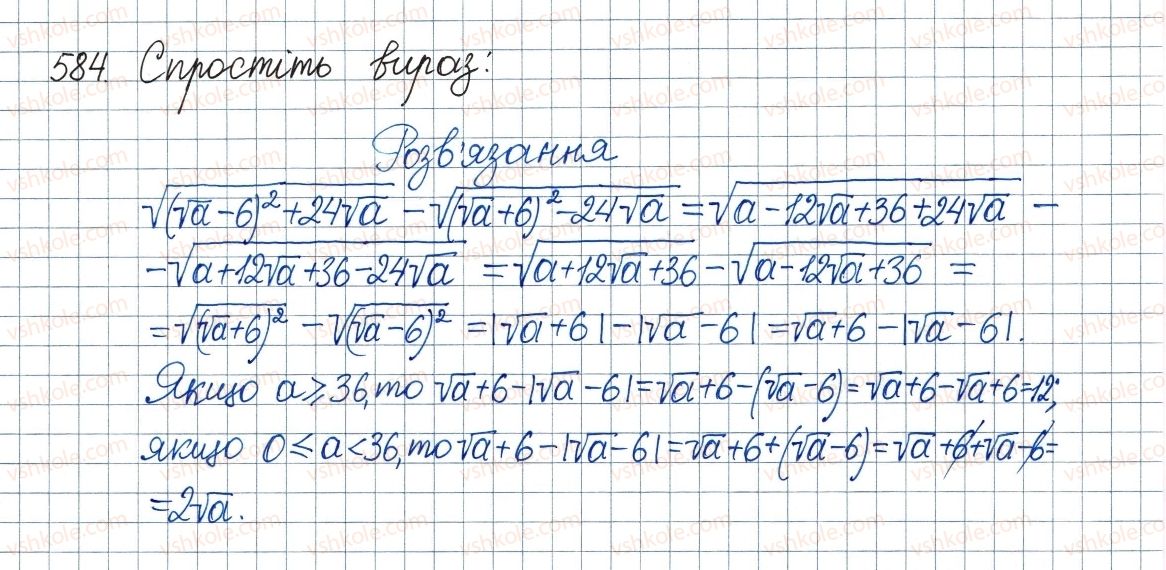 584. Спростіть вираз:
Розв'язання
√((√a-6)²+24√a) - √((√a+6)²-24√a) = √(a-12√a+36+24√a) -
-√(a+12√a+36-24√a) = √(a+12√a+36) - √(a-12√a+36) =
=√((√a+6)²) - √((√a-6)²) = |√a+6| - |√a-6| = √a+6 - |√a-6|.
Якщо a⩾36, то √a+6-|√a-6| = √a+6-(√a-6) = √a+6-√a+6=12;
якщо 0≤a<36, то √a+6-|√a-6| = √a+6+(√a-6) = √a+6+√a-6=
=2√a.